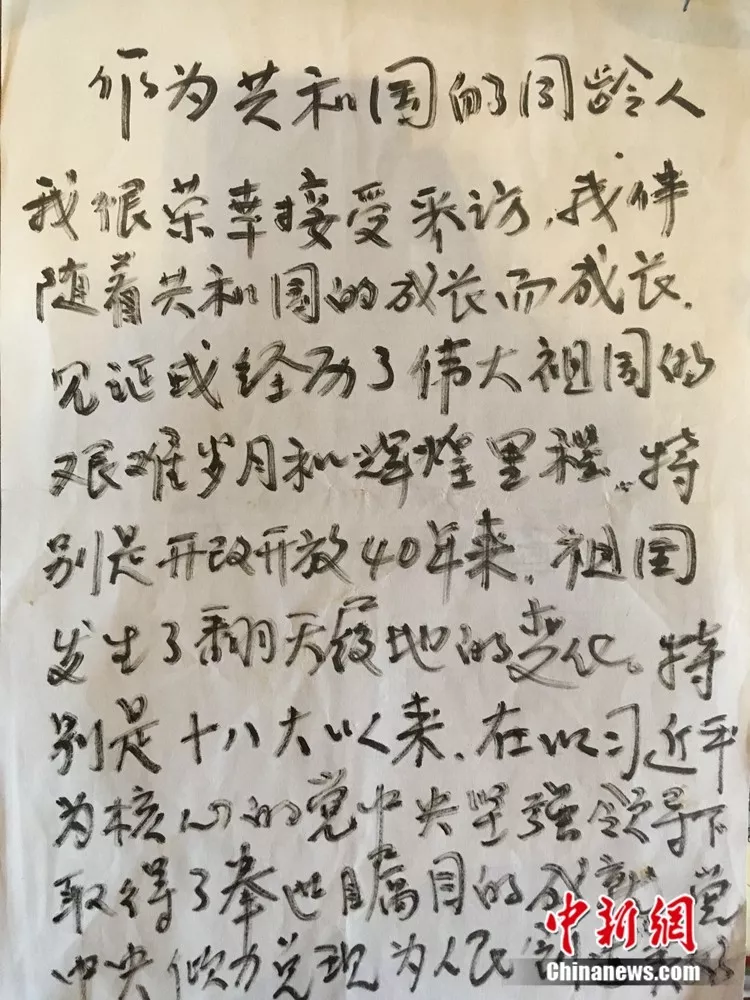 作为共和国的同龄人
我很荣幸接受采访，我伴
随着共和国的成长而成长.
见证或经历了伟大祖国的
艰难岁月和辉煌里程.特
别是开改开放40年来.祖国
发生了翻天覆地的变化。特
别是十八大以来.在以习近平
为核心的党中央坚强领导下
取得了举世瞩目的成就 党
中央倾力兑现为人民
中新網
Chinanews.com